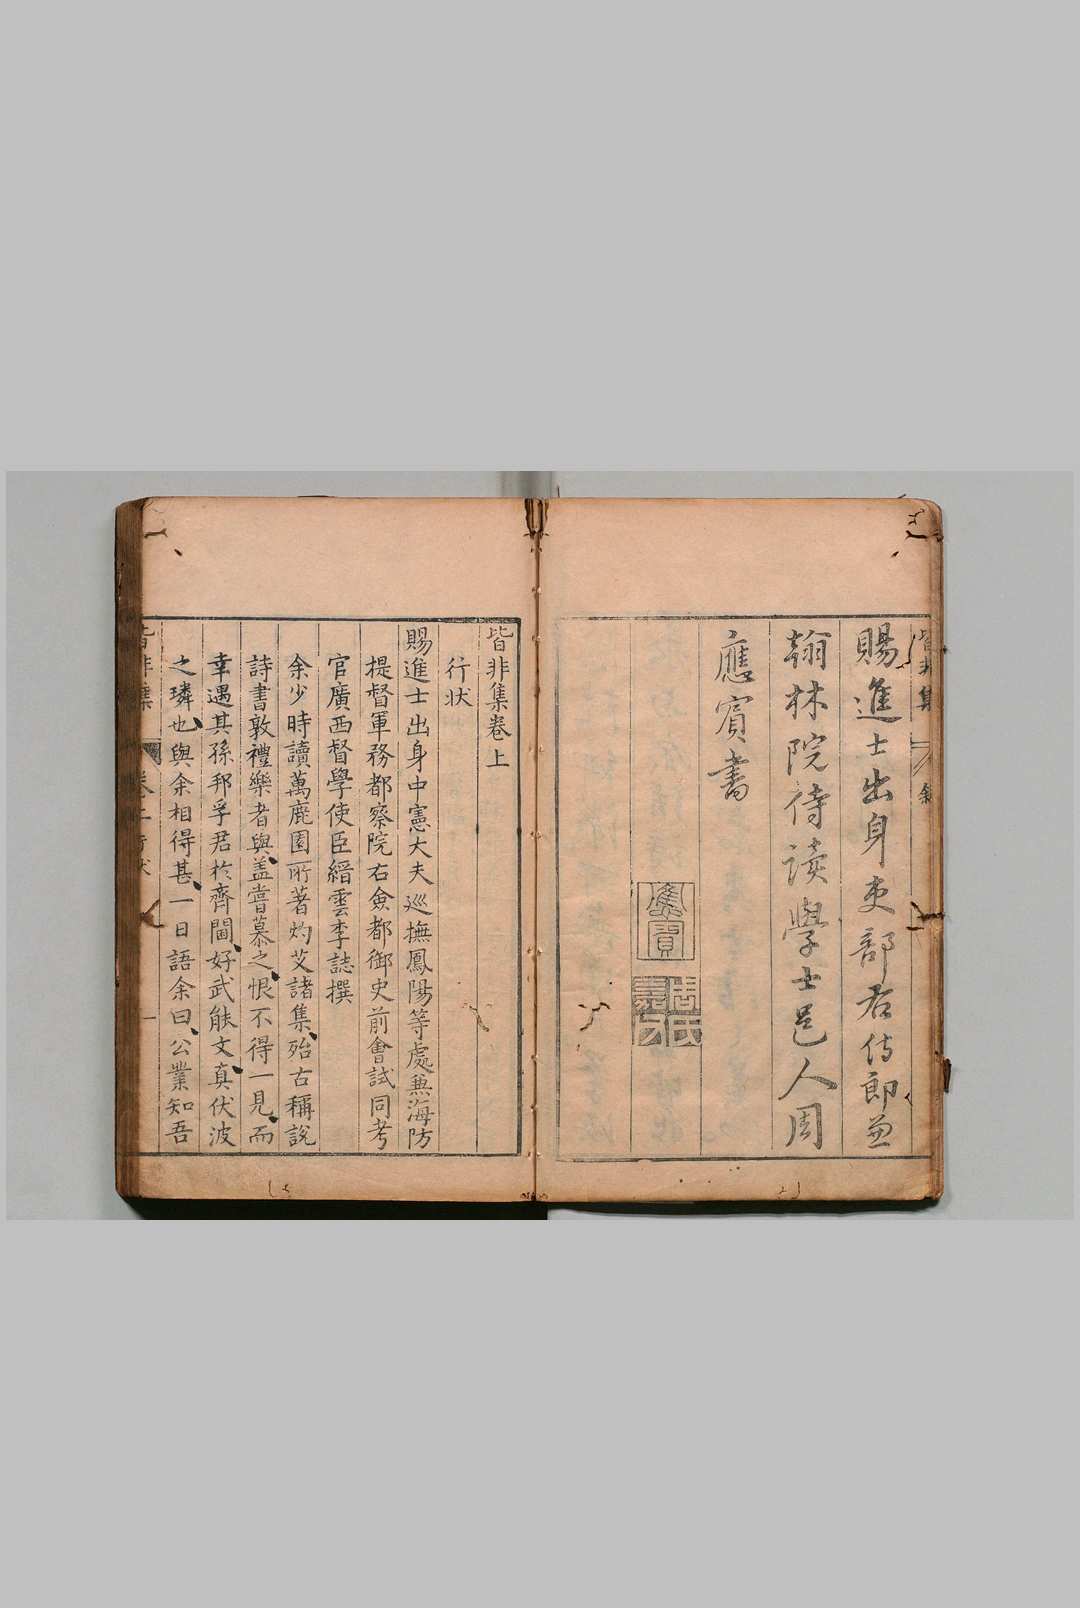 皆非集
敘
賜進士出身吏部右侍郎兼
翰林院侍讀學士邑人周
應賓書
應賓
周氏嘉父
皆非集卷上
行狀
賜進士出身中憲大夫巡撫鳳陽等處兼海防
提督軍務都察院右僉都御史前會試同考
官廣西督學使臣縉雲李誌撰
余少時讀萬鹿園所著灼艾諸集、殆古稱說
詩書敦禮樂者與、盖嘗慕之、恨不得一見、而
幸遇其孫邦孚君於齊閫、好武能文、真伏波
之璘也、與余相得甚、一日語余曰、公業知吾
皆非集
卷上行狀
一